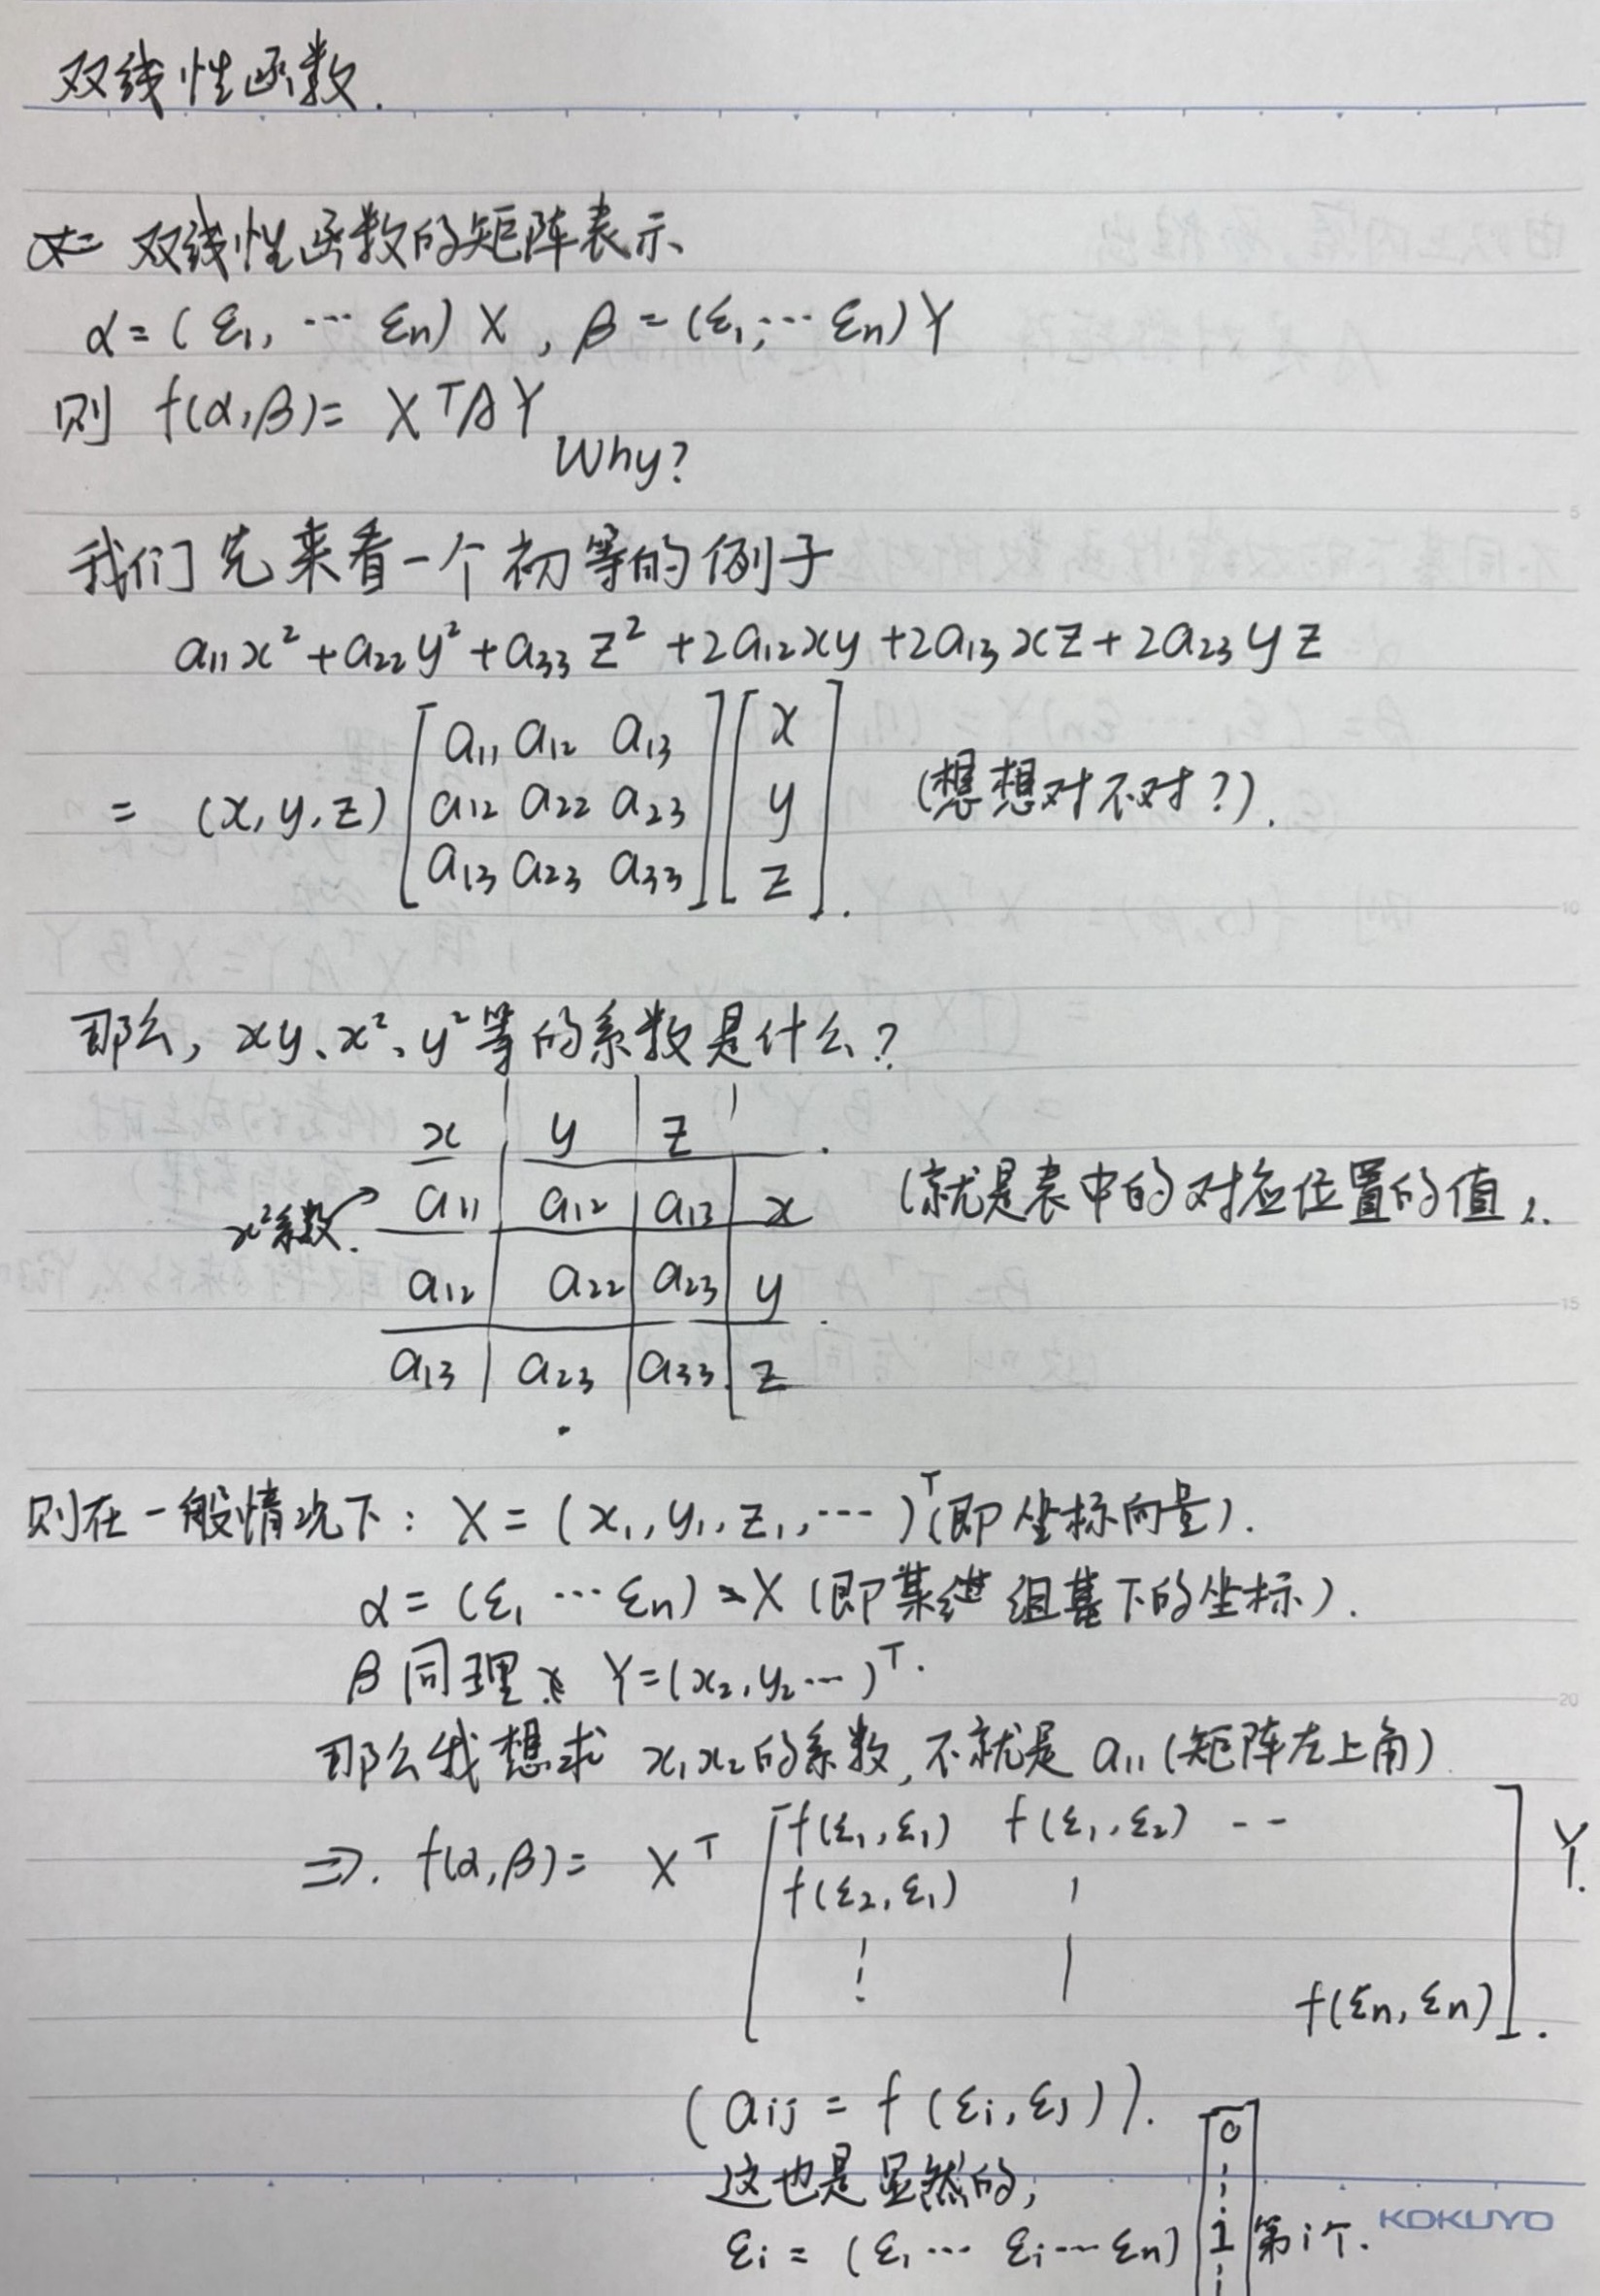 双线性函数.
双线性函数的矩阵表示
α = (ε₁, ⋯ εn) X , β = (ε₁, ⋯ εn) Y
则 f(α,β) = XᵀAY
Why?
我们先来看一个初等的例子
a₁₁x² + a₂₂y² + a₃₃z² + 2a₁₂xy + 2a₁₃xz + 2a₂₃yz
= (x, y, z) [a₁₁ a₁₂ a₁₃
a₁₂ a₂₂ a₂₃
a₁₃ a₂₃ a₃₃] [x
y
z]. (想想对不对?).
那么, xy、x²、y²等的系数是什么?
x y z
x²系数. a₁₁ a₁₂ a₁₃ x (就是表中的对应位置的值).
a₁₂ a₂₂ a₂₃ y
a₁₃ a₂₃ a₃₃ z
则在一般情况下: X = (x₁, y₁, z₁, ⋯)ᵀ (即坐标向量).
α = (ε₁ ⋯ εn) X (即某组基下的坐标).
β 同理 Y = (x₂, y₂ ⋯)ᵀ.
那么我想求 x₁x₂的系数, 不就是 a₁₁ (矩阵左上角)
⇒. f(α,β) = Xᵀ [f(ε₁,ε₁) f(ε₁,ε₂) --
f(ε₂,ε₁)
⋮
f(εn,εn)] Y.
(aij = f(εi,εj)).
这也是显然的,
εi = (ε₁ ⋯ εi ⋯ εn) [0
⋮
1 第i个.
⋮
KOKUYO
5
10
15
20